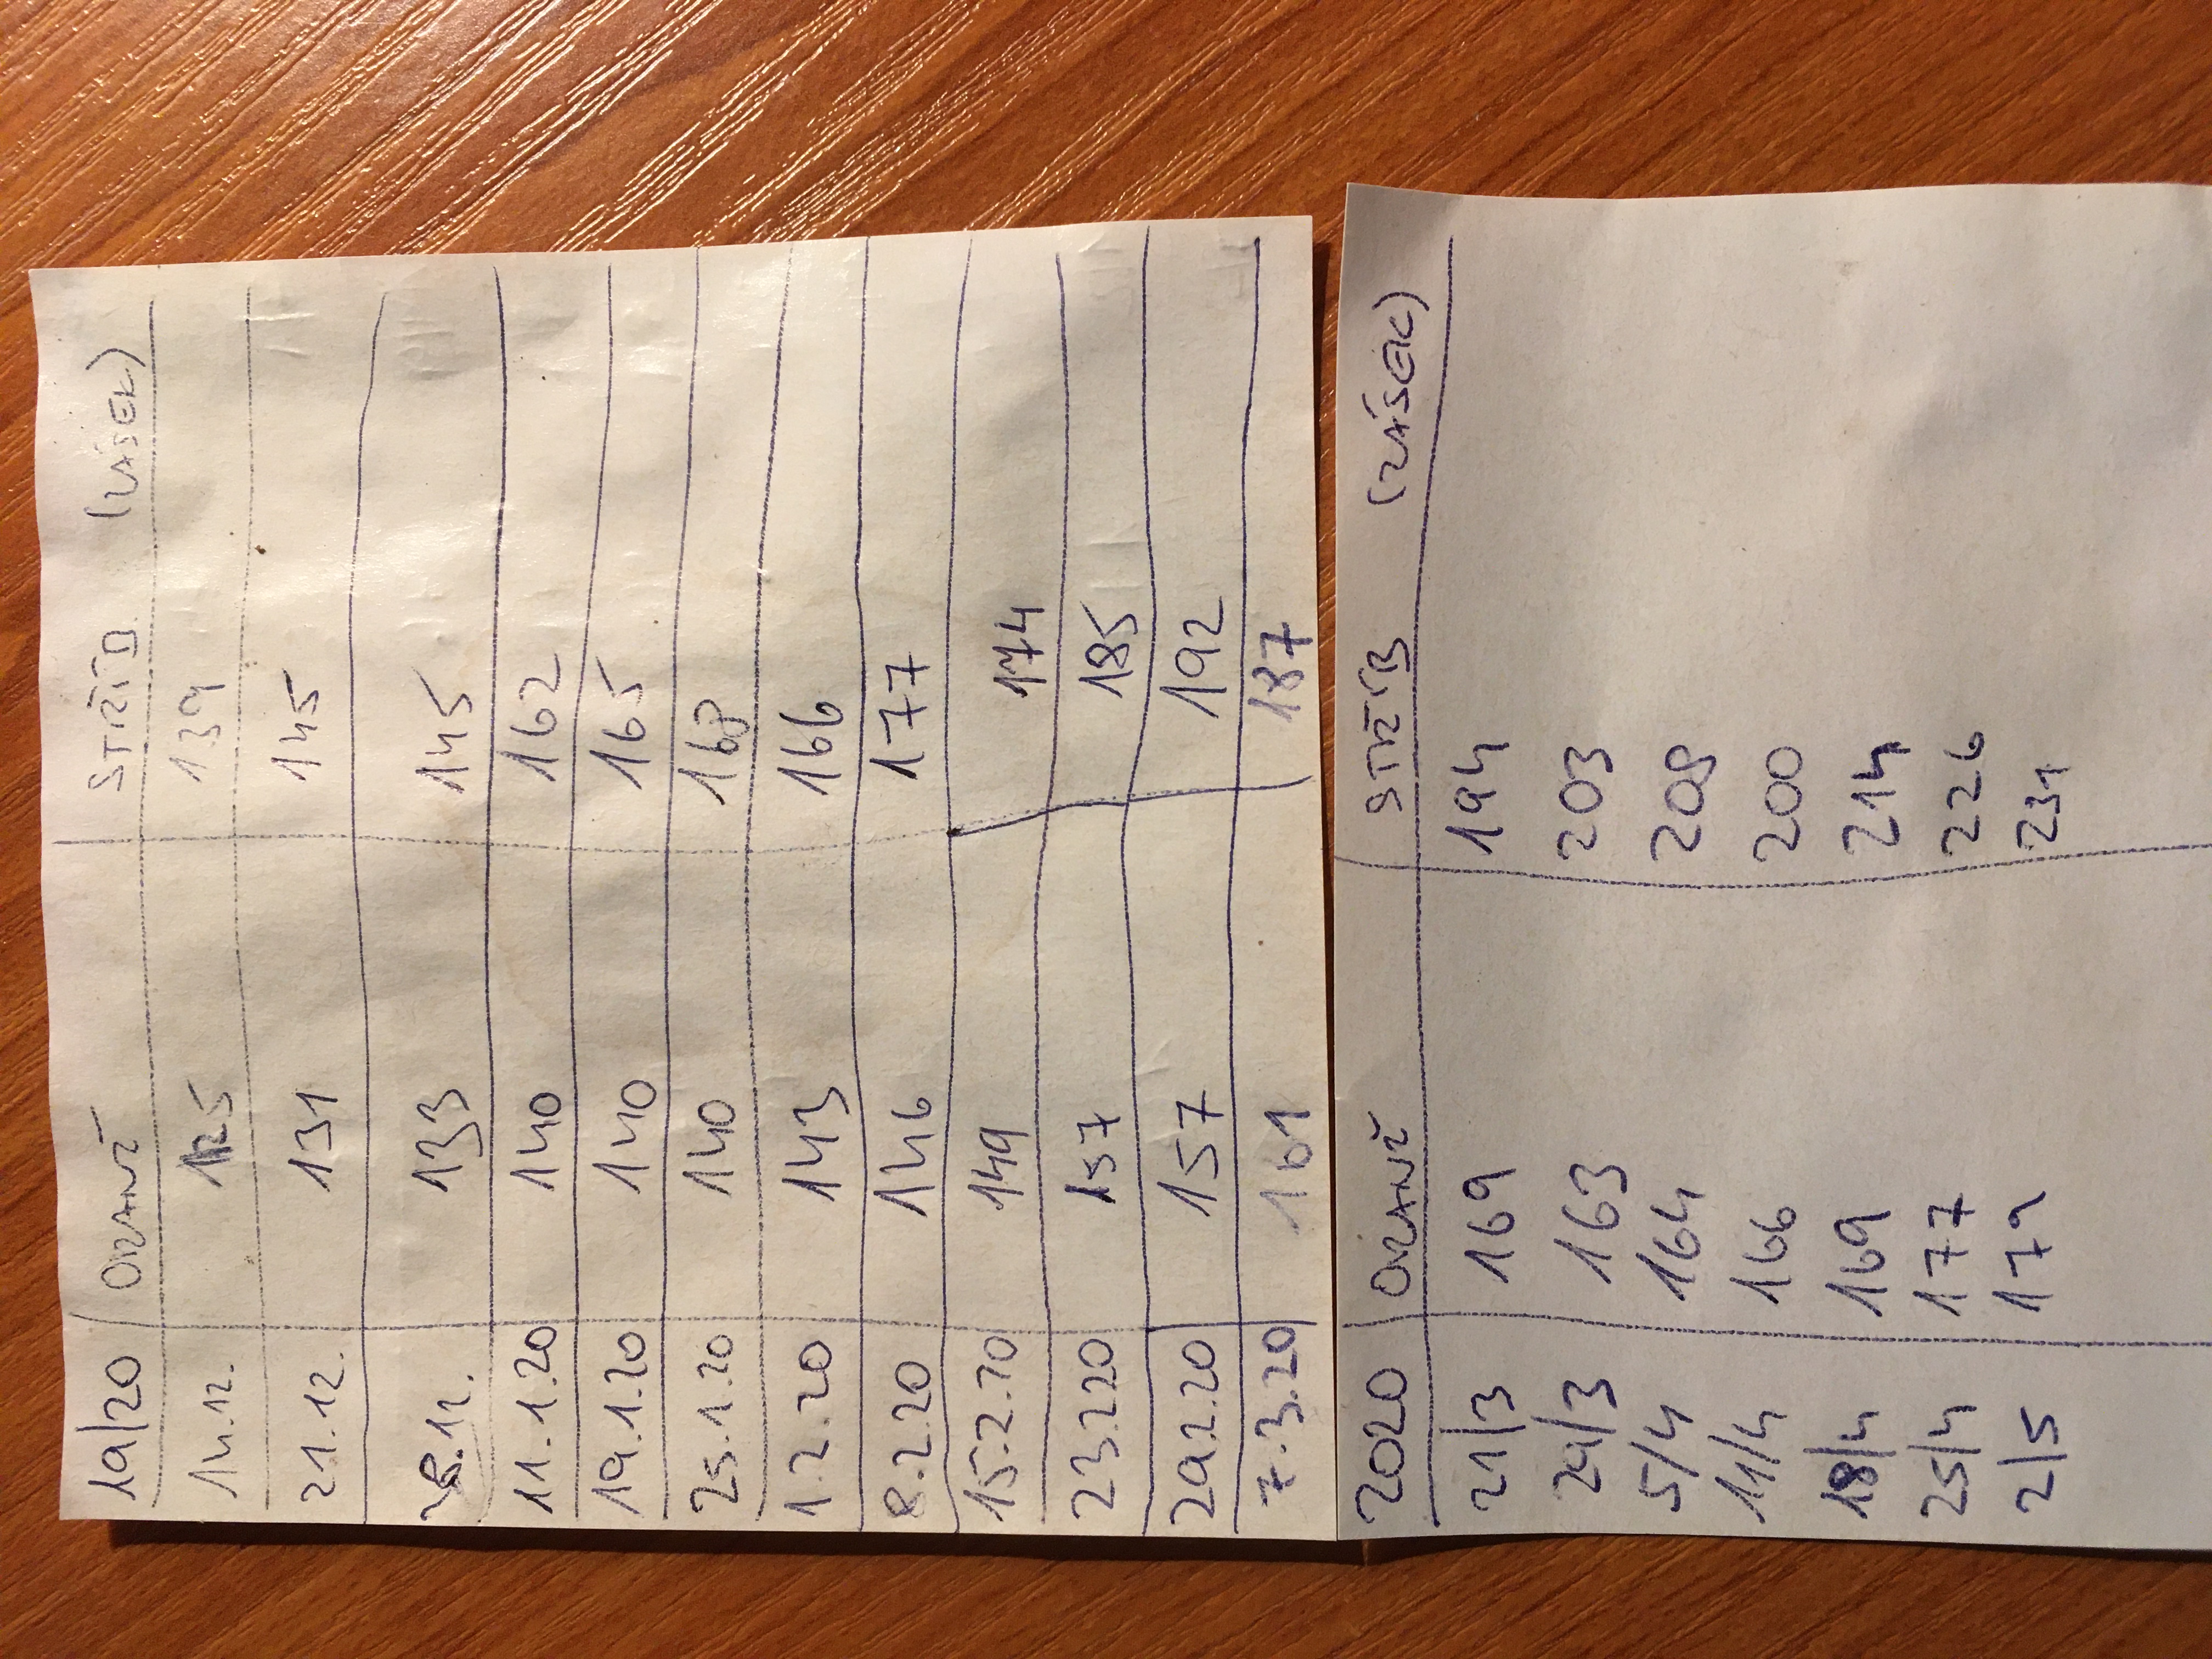 19/20 ORANŽ STŘÍB (ZÁSEK)
14.12. 125 139
21.12. 131 145
28.12. 133 145
11.1.20 140 162
19.1.20 140 165
25.1.20 140 168
1.2.20 143 166
8.2.20 146 177
15.2.20 149 174
23.2.20 157 185
29.2.20 157 192
7.3.20 161 187
2020 ORANŽ STŘÍB (ZÁSEK)
21/3 169 194
29/3 163 203
5/4 164 208
11/4 166 200
18/4 169 214
25/4 177 226
2/5 179 231